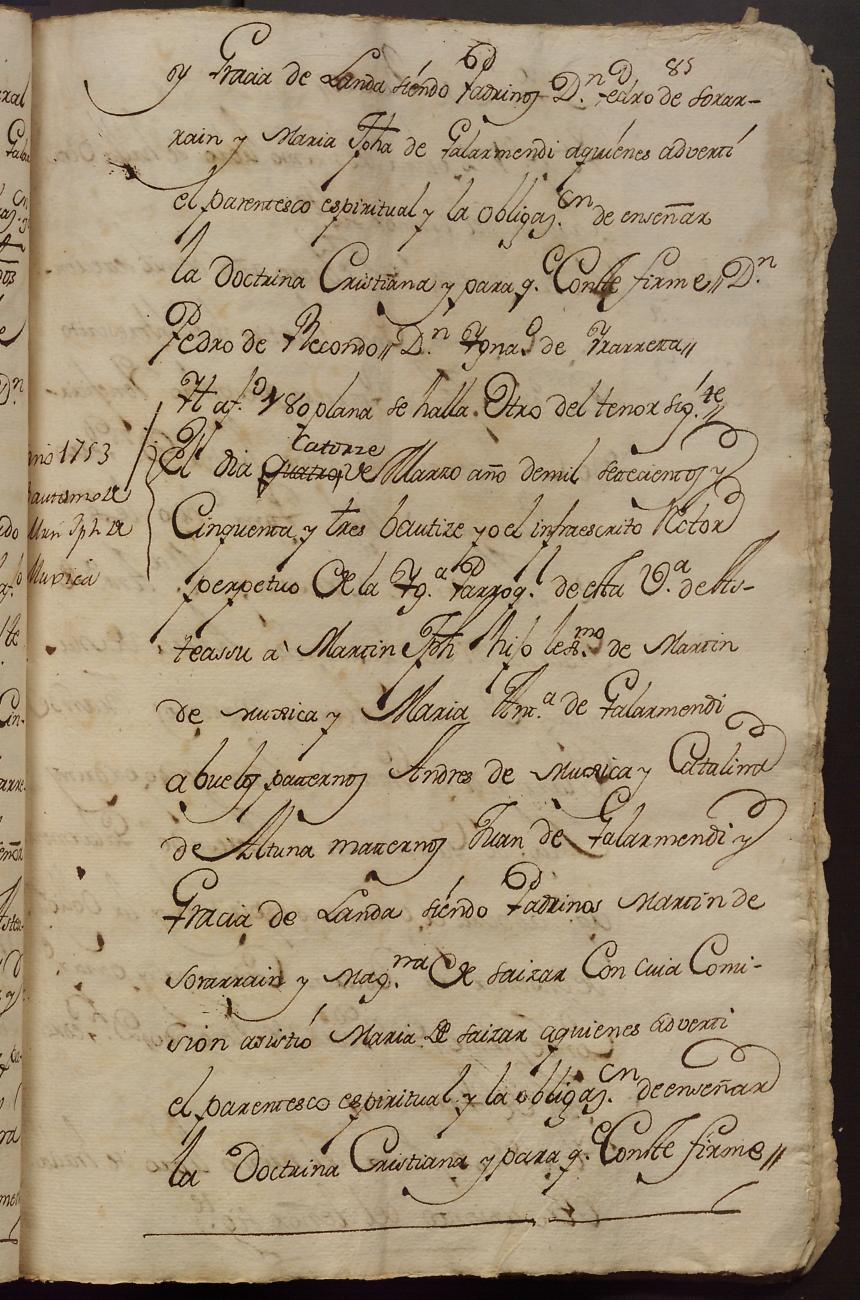 85
y Gracia de Landa siéndo Padrinos D.n Pedro de Sorar-
rain y Maria Jpha de Galarmendi aquiénes advertí
el parentesco espiritual y la obligaz.cn de enseñar
la Doctrina Cristiana y para q.e Conste firme // D.n
Pedro de Recondo // D.n Ygna.o de Yrarreta //
Yt af.o 180 plana se halla Otro del tenor sig.te //
Catorze
El dia quatro de Marzo año de mil setecientos y
Cinquenta y tres bautize yo el infraescrito Retor
perpetuo de la Yg.a Parroq.l de esta V.a de As-
teassu a Martin Jph hijo lex.mo de Martin
de Muxica y Maria Ant.a de Galarmendi
abuelos paternos Andres de Muxica y Catalina
de Altuna maternos Juan de Galarmendi y
Gracia de Landa siéndo Padrinos Martin de
Sorarrain y Mag.na de Saizar Con cuia Comi-
sión asistió Maria de Saizar aquienes adverti
el parentesco espiritual y la obligaz.cn de enseñar
la Doctrina Cristiana y para q.e Conste firme //
año 1753
Bautismo de
Mrñ Jph de
Muxica